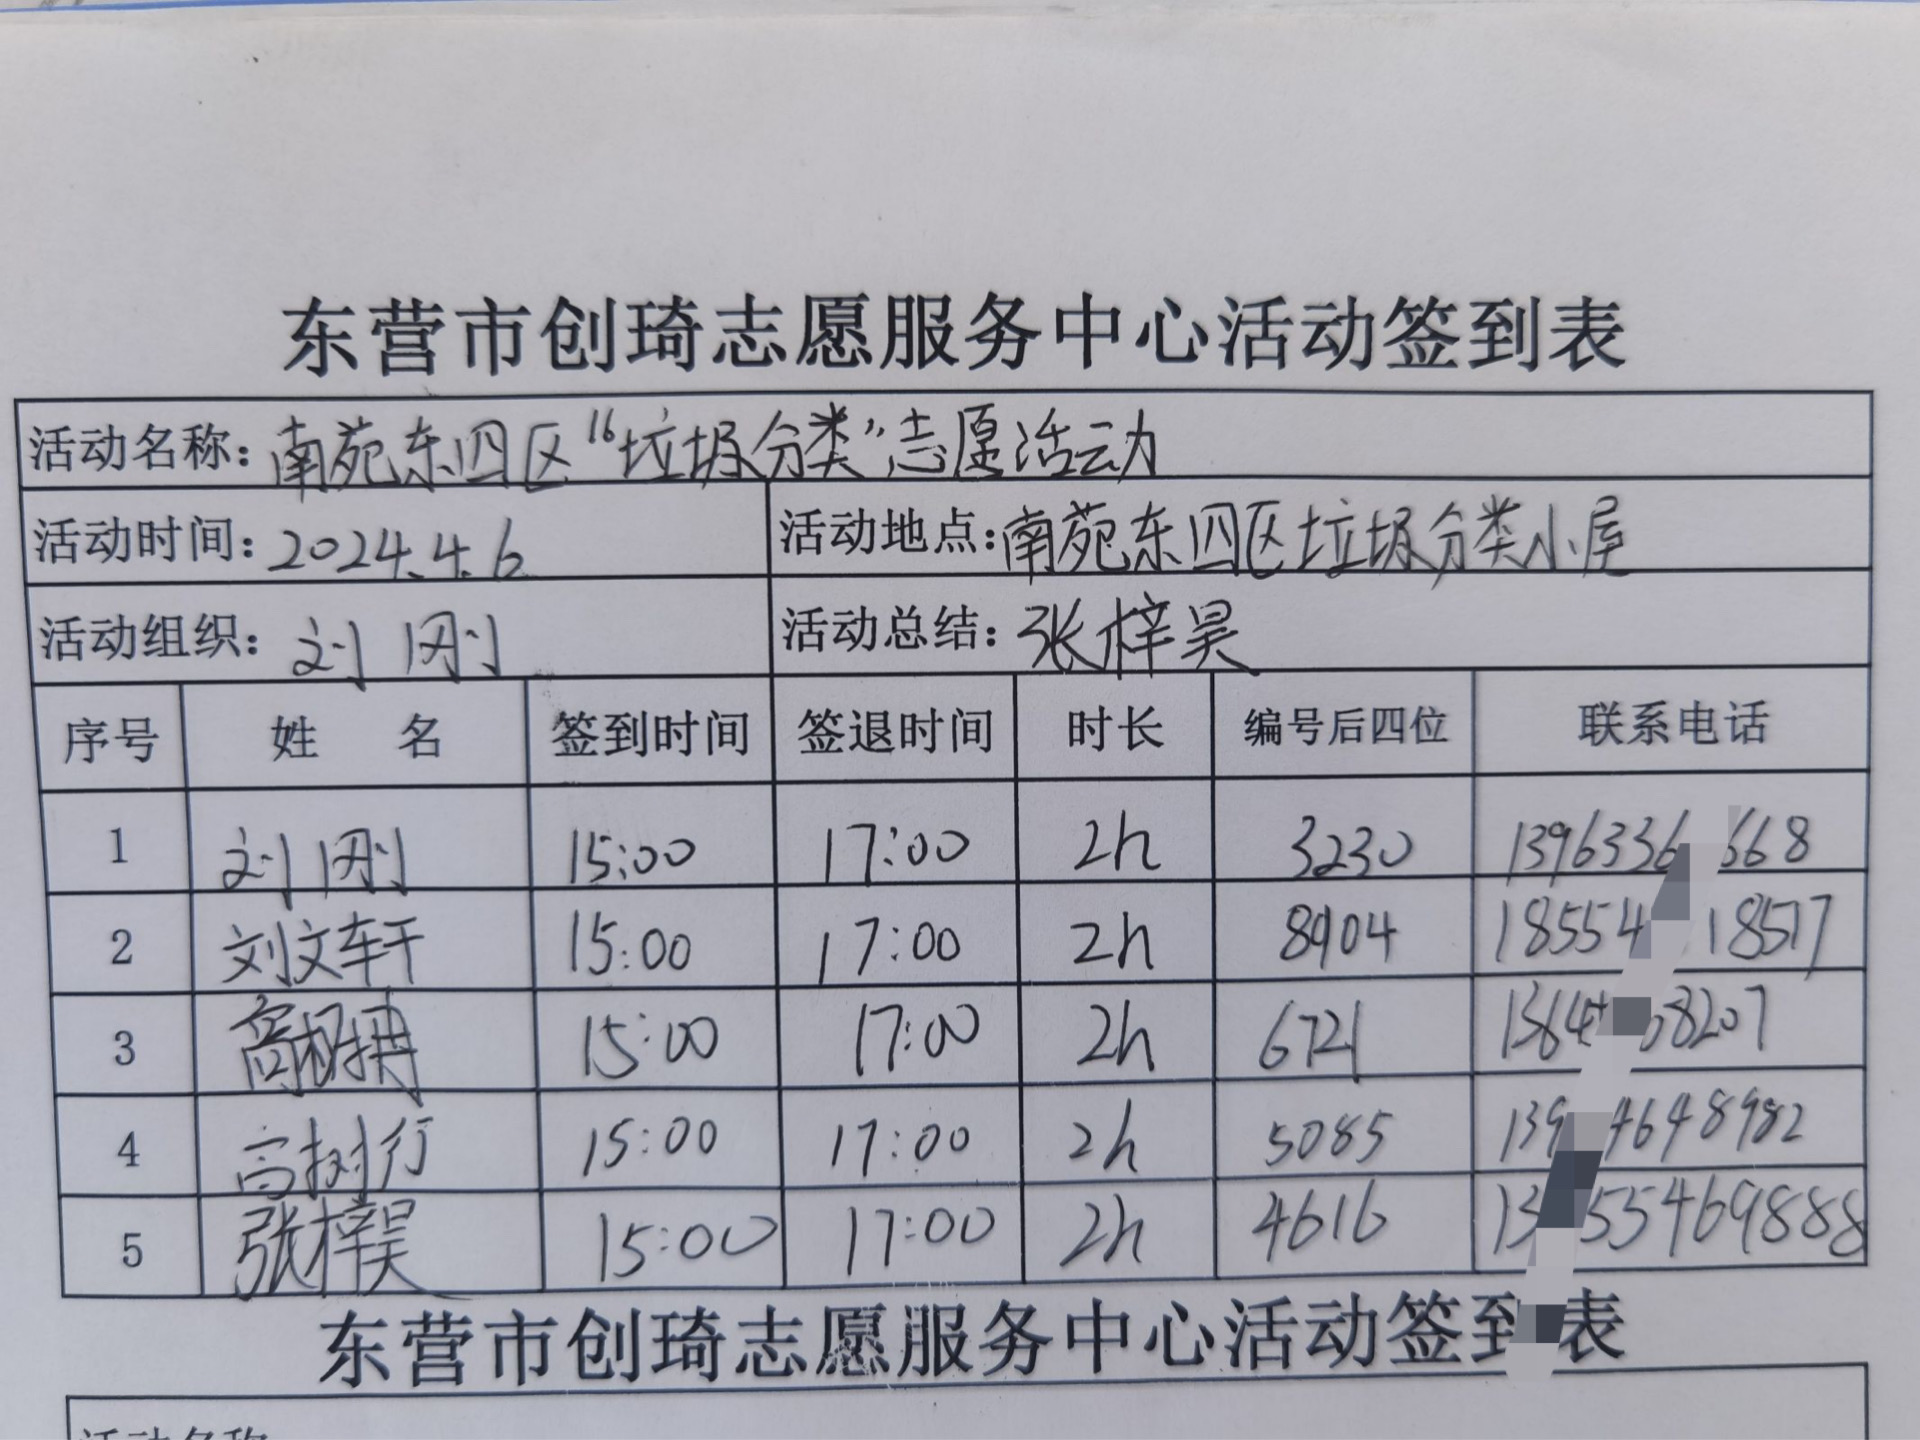 东营市创琦志愿服务中心活动签到表
活动名称：南苑东四区“垃圾分类”志愿活动
活动时间：2024.4.6 活动地点：南苑东四区垃圾分类小屋
活动组织：刘刚 活动总结：张梓昊
序号 姓 名 签到时间 签退时间 时长 编号后四位 联系电话
1 刘刚 15:00 17:00 2h 3230 1396336 668
2 刘文轩 15:00 17:00 2h 8904 18554 18517
3 15:00 17:00 2h 6721 1364 08207
4 高树行 15:00 17:00 2h 5085 139 4648982
5 张梓昊 15:00 17:00 2h 4616 13 55469888
东营市创琦志愿服务中心活动签到表
活动名称